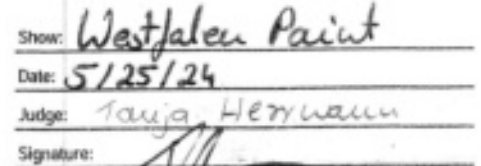 Show: Westfalen Paint
Date: 5/25/24
Judge: Tanja Herrmann
Signature: